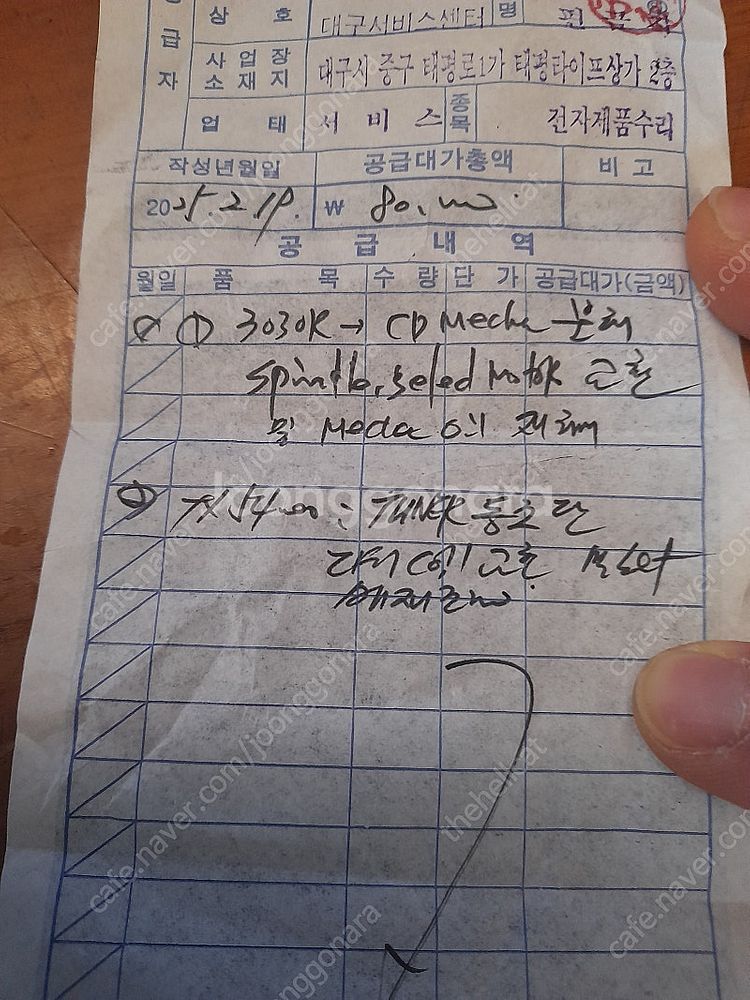 공급자
상 호 대구서비스센터 명
사업장소재지 대구시 중구 태평로1가 태평라이프상가 2층
업 태 서비스 종목 전자제품수리
작성년월일 공급대가총액 비고
2025. 2. 19. ₩ 80,000
공 급 내 역
월일 품 목 수량 단가 공급대가(금액)
① 3030R → CD Mecha 분해
Spindle, Motor 교환
및 Mecha
② TUNER 동조단
교환
joonggonara
cafe.naver.com/joonggonara
thehellcat